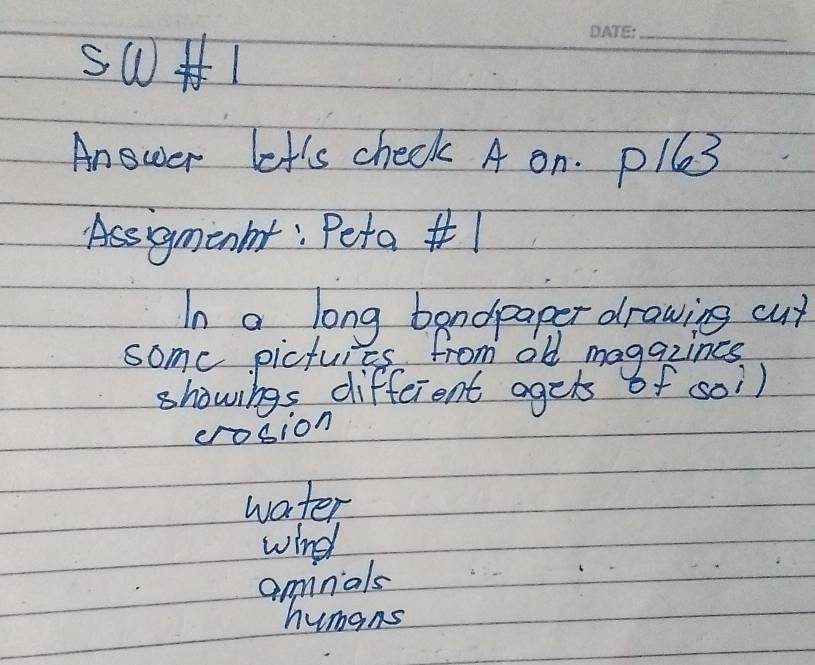 DATE:
SW #1
Answer let's check A on. p163
Assigmenmt: Peta #1
In a long bondpaper drawing cut
some pictuires from old magazines
showings different agets of soil
erosion
water
wind
amnials
humans